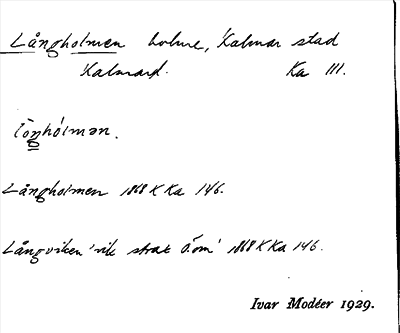 Långholmen holme, Kalmar stad
Kalmar l. Ka 111.
lȯŋhólmən.
Långholmen 1868 K Ka 146.
Långviken 'vik strax ö. om' 1868 K Ka 146.
Ivar Modéer 1929.